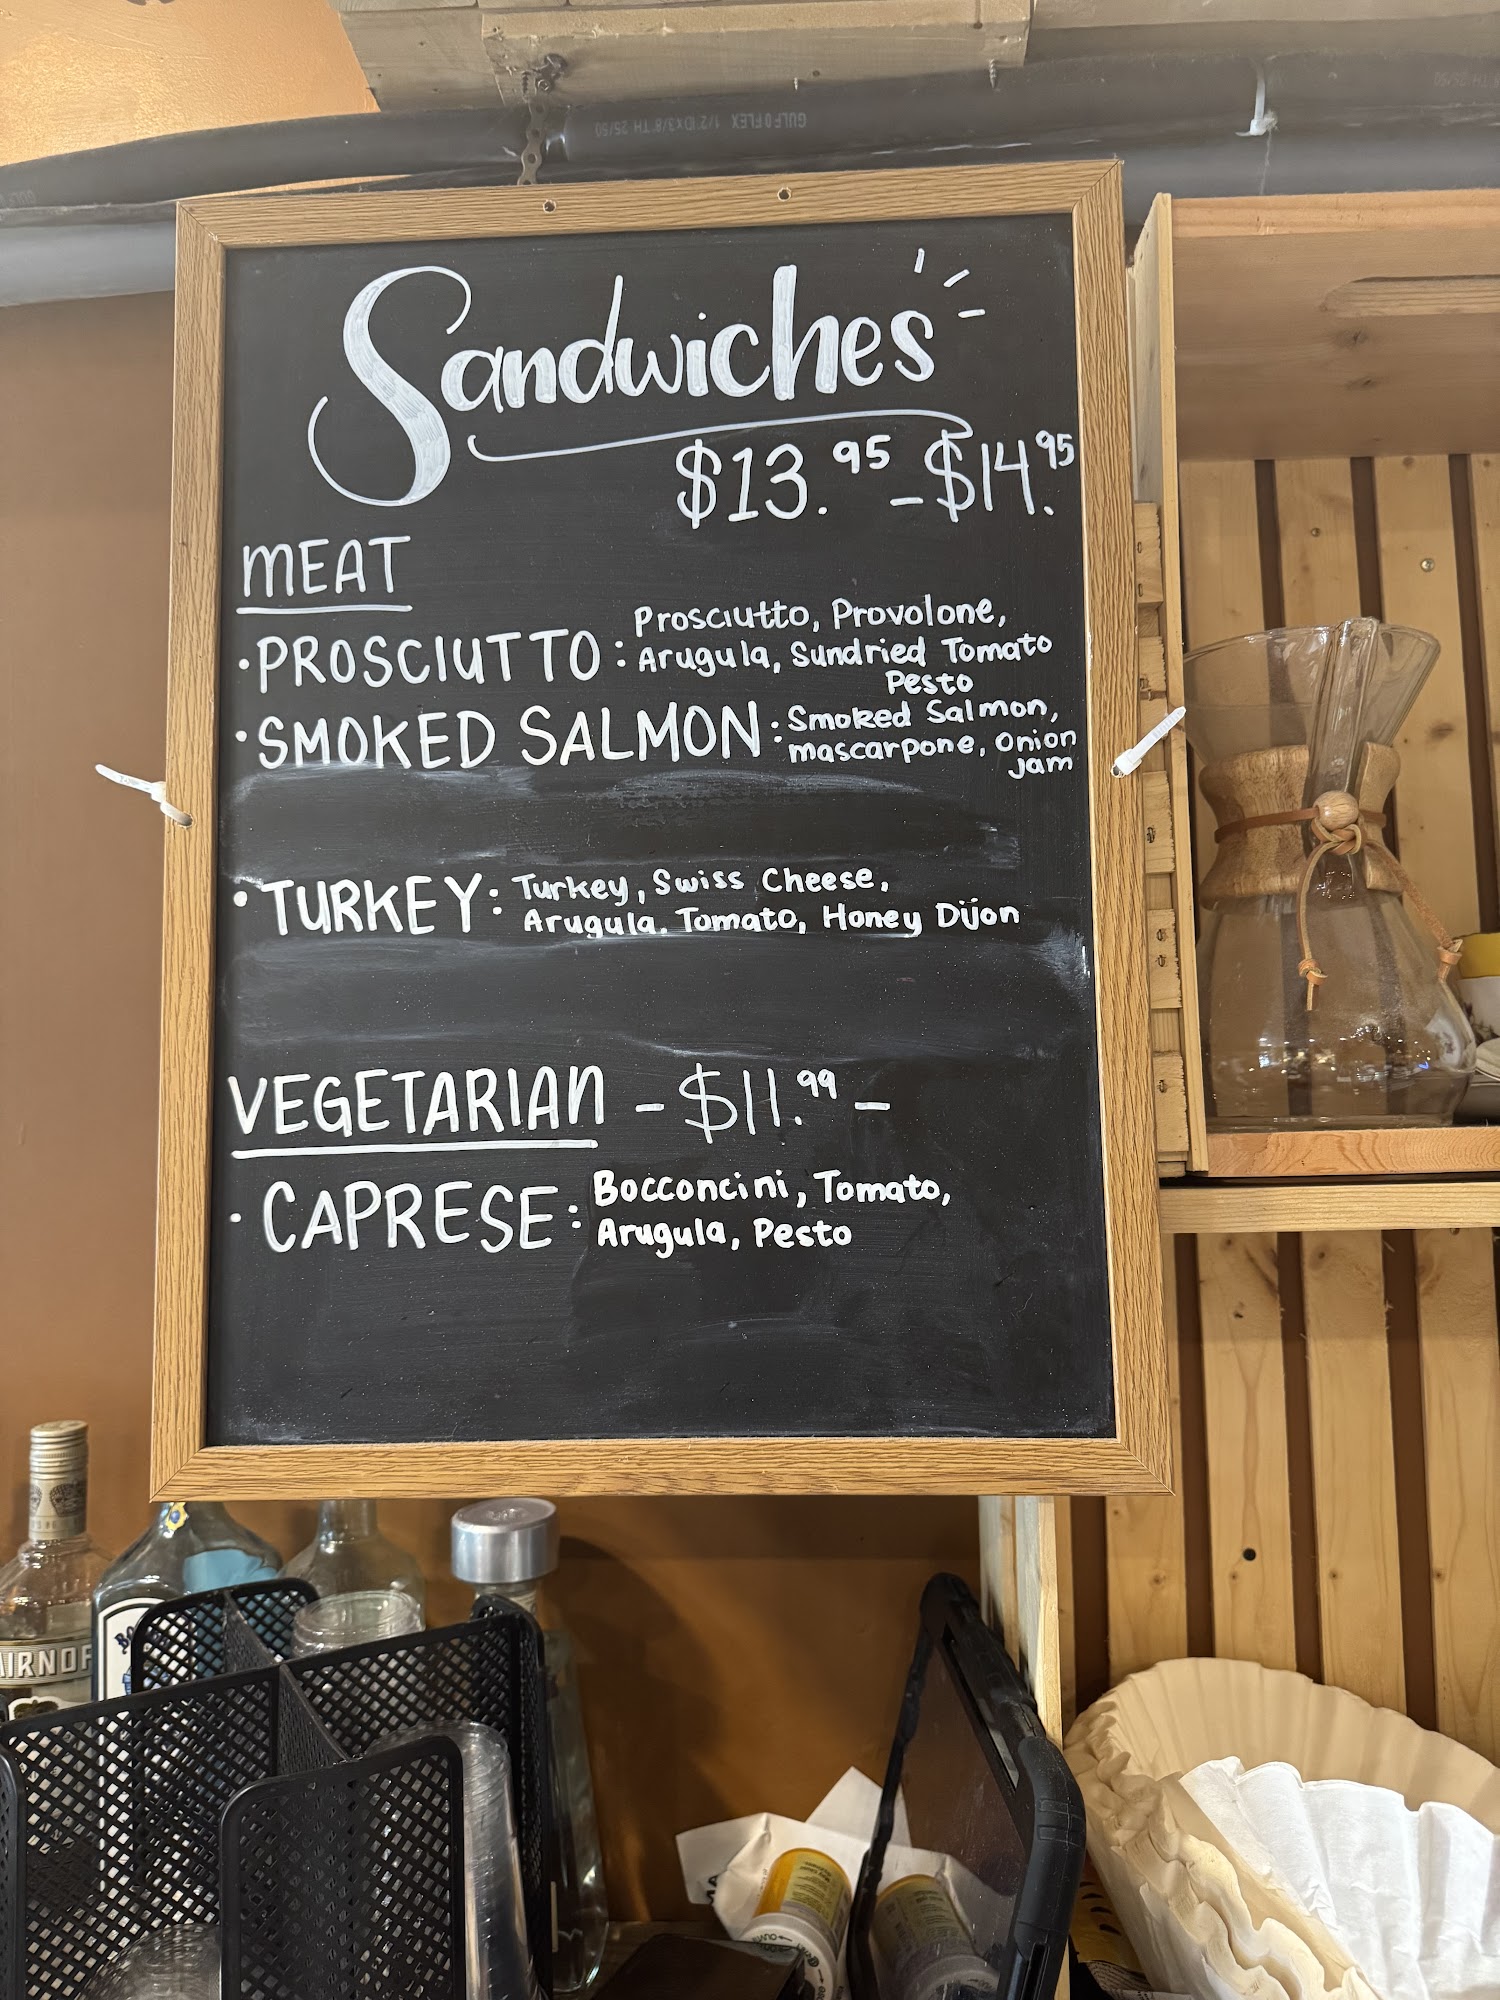 GULFOFLEX 1/2"IDX3/8"TH 25/50
Sandwiches
$13.95 - $14.95
MEAT
· PROSCIUTTO : Prosciutto, Provolone,
Arugula, Sundried Tomato
Pesto
· SMOKED SALMON : Smoked Salmon,
mascarpone, onion
jam
· TURKEY : Turkey, Swiss Cheese,
Arugula, Tomato, Honey Dijon
VEGETARIAN - $11.99 -
· CAPRESE : Bocconcini, Tomato,
Arugula, Pesto